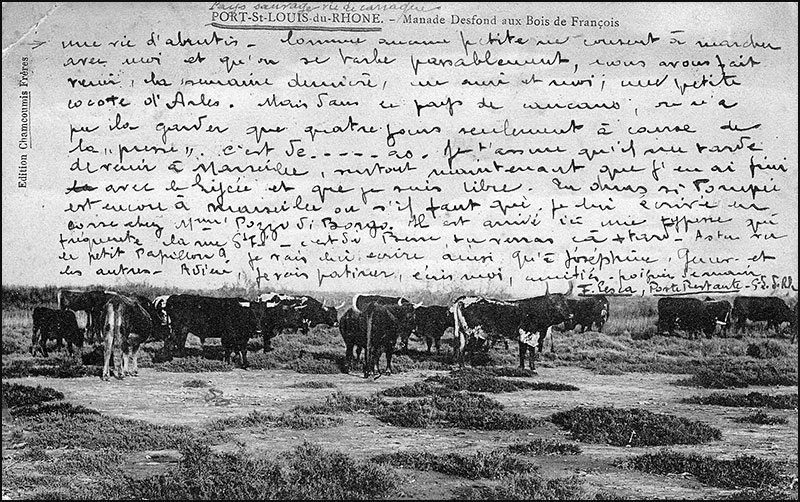 Pays sauvage vie de
PORT-St-LOUIS-du-RHONE. - Manade Desfond aux Bois de François
Edition Chamcoumis Frères
une vie d'abrutis - Comme aucune petite ne consent à marcher
avec moi et qu'on se barbe passablement, nous avons fait
venir, la semaine dernière, un ami et moi, une petite
cocotte d'Arles. Mais dans ce pays de cancans, on n'a
pu la garder que quatre jours seulement à cause de
la "presse". C'est de - - - - - Je t'assure qu'il me tarde
de venir à Marseille, surtout maintenant que j'en ai fini
avec le Lycée et que je suis libre. tu diras si Pompée
est encore à Marseille ou s'il faut que je lui écrive en
corse chez Pozzo di Borgo. Il est arrivé ici une qui
fréquente la rue - c'est du tu verras çà + tard - As tu vu
le petit Papillon? je vais lui écrire ainsi qu'à Joséphine, et
les autres - Adieu, je vais patiner, écris moi, amitiés - poignée de main
Poste Restante